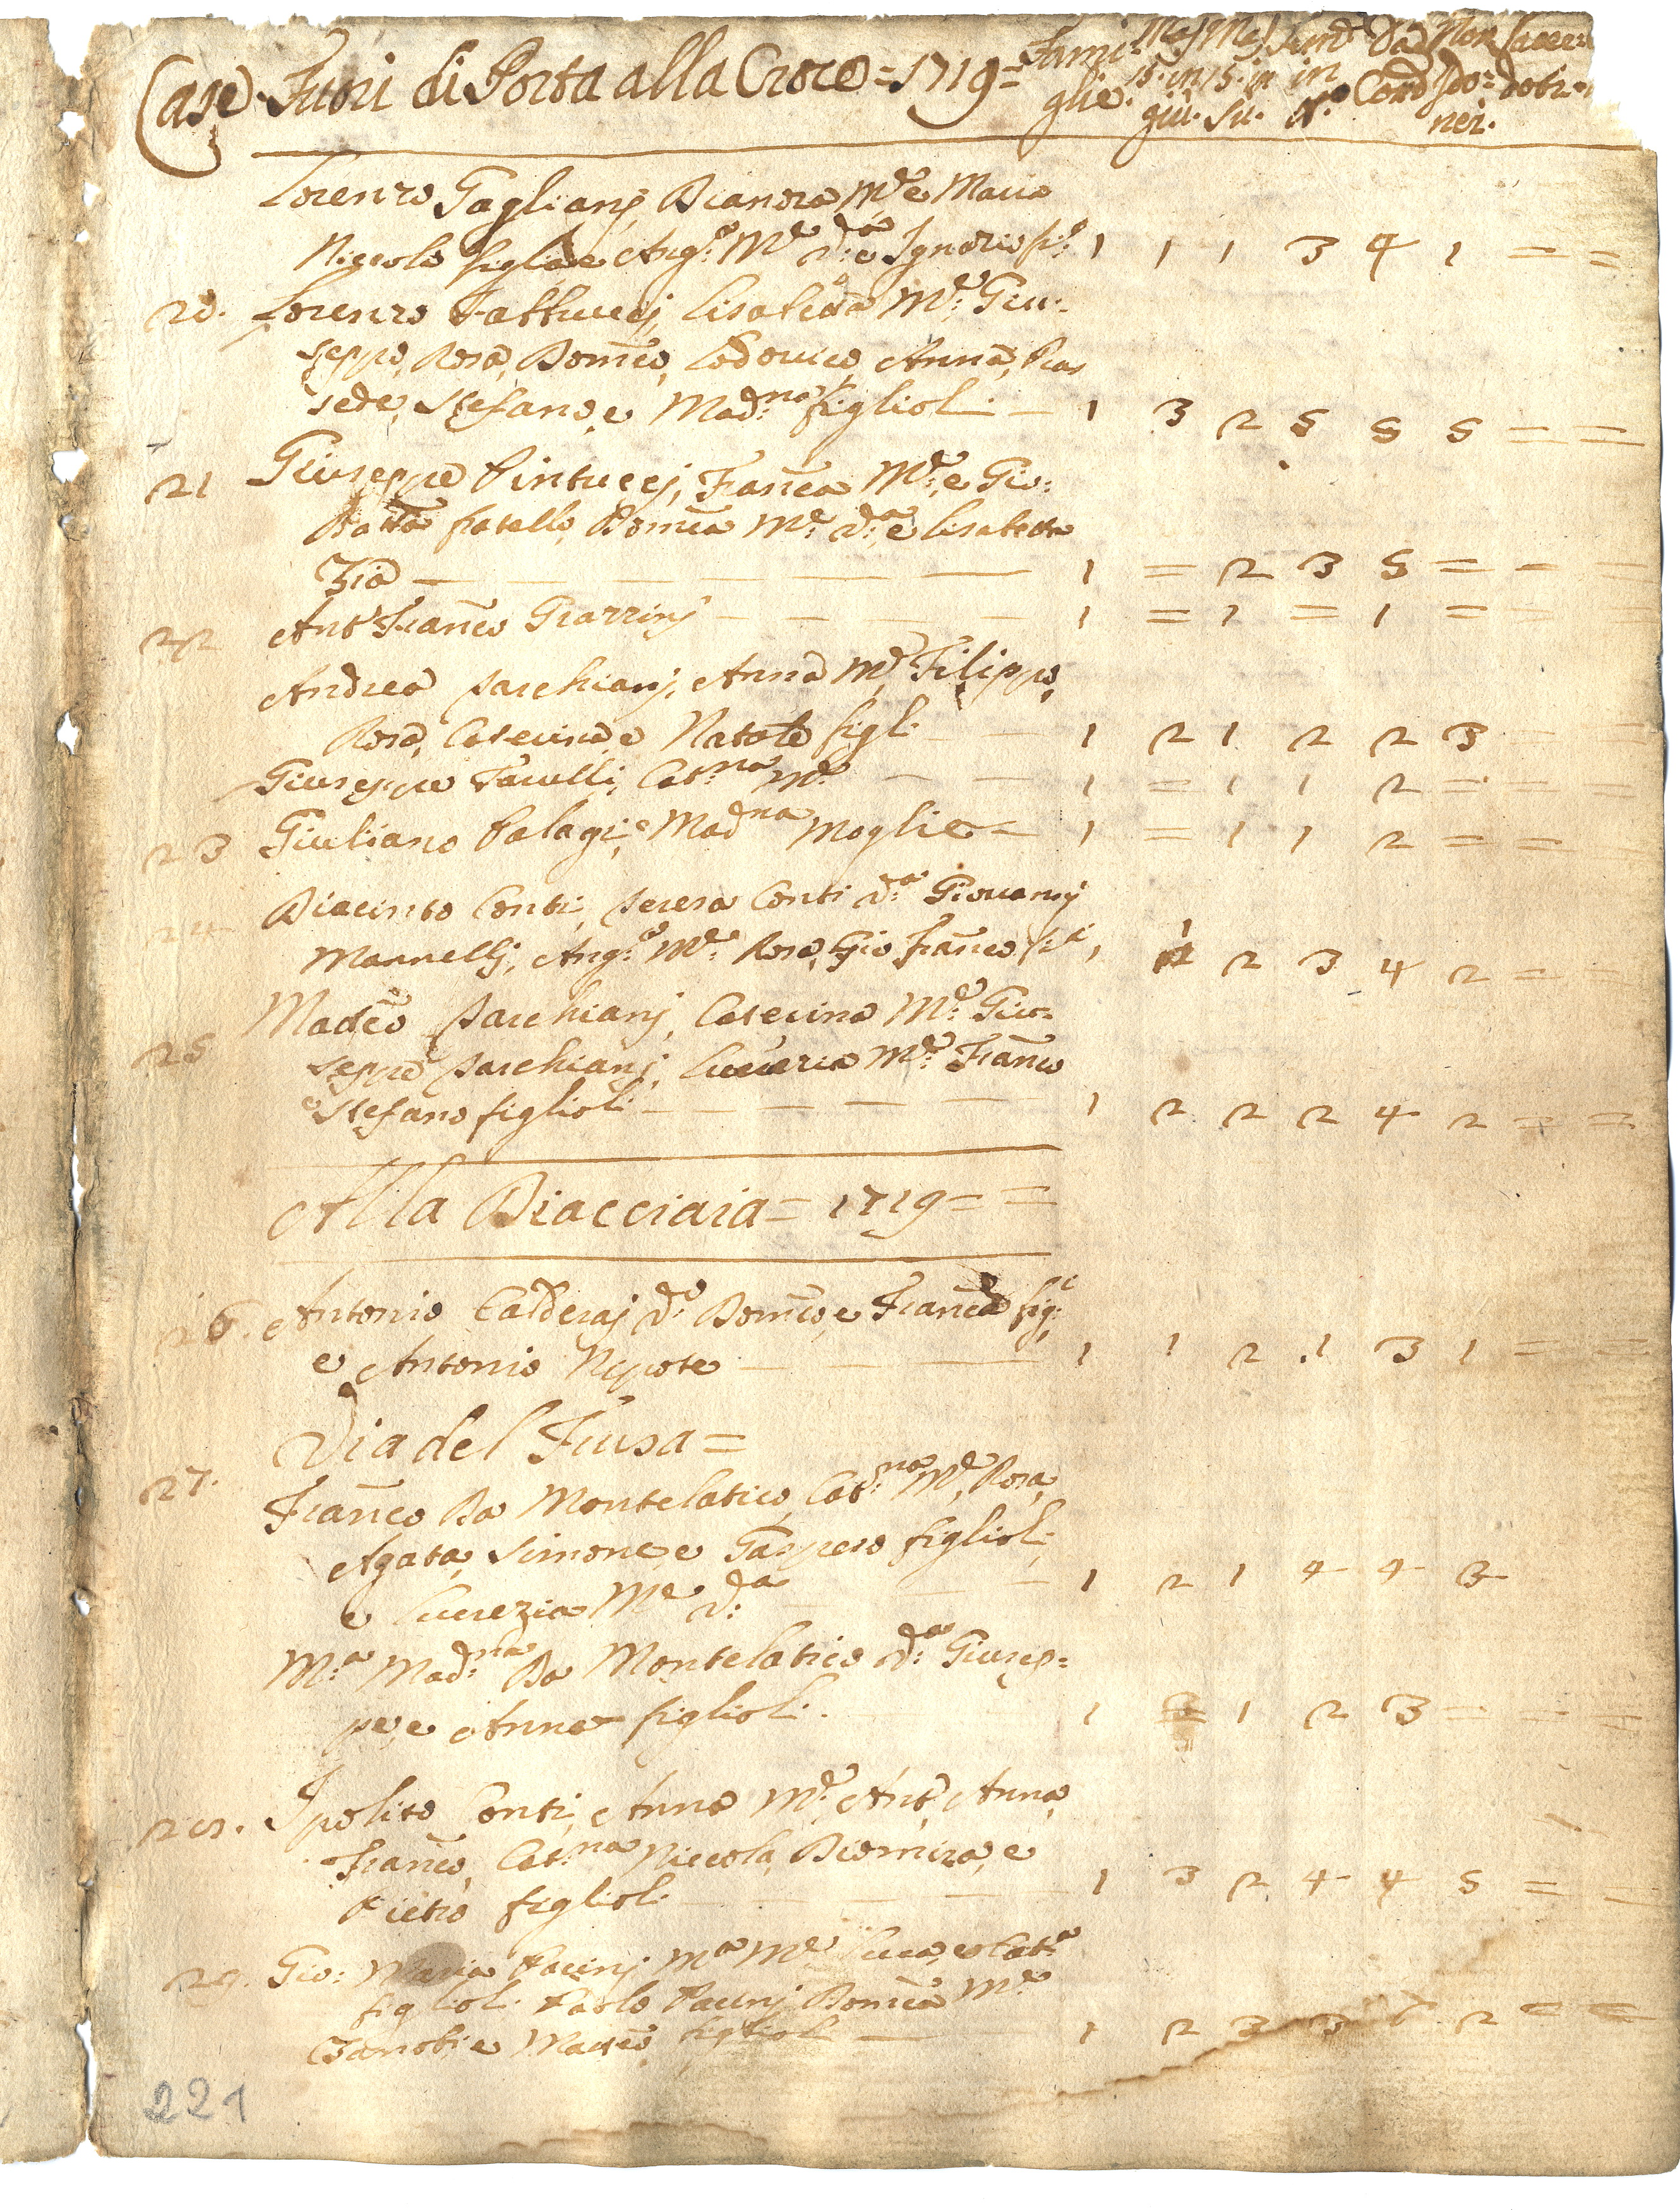 Case Fuori di Porta alla Croce = 1719 = Fami: Mas Mas Fem. Da Non Sacer
glie. 15. in 15. in in Com Sdo: doti
giù. Su. N.o nei.
Lorenzo Tagliani, Dianora M.e e Maria
Niccolo figli e Ang.a M.e d.a e Ignazio fi.o 1 1 1 3 4 1 = =
20. Lorenzo Fattucci, Lisabetta M.e Giu:
seppe, Rosa, Dom.co, Lodovico, Anna, Pras
sede, Stefano, e Mad.na figlioli — 1 3 2 5 5 5 = =
21 Giuseppe Pintucci, Fran.ca M.e, e Gio:
Batta fratello, Dom.ca M.e d.a e Lisabetta
Zia — — — — — — 1 = 2 3 5 = = =
22 Ant.o Fran.co Grazzini — — — — 1 = 1 = 1 = = =
Andrea Parchiani, Anna M.e Filippo,
Rosa, Caterina, e Natale figli — — 1 2 1 2 2 3 = =
Giuseppe Tacelli, Cat.na M.e — — 1 = 1 1 2 = = =
23 Giuliano Palagi, e Mad.na Moglie = 1 = 1 1 2 = = =
24 Diacinto Conti, Teresa Conti d.a Giovanni
Mannelli, Ang.a M.e Rosa, Gio Fran.co fi.li 1 1 2 3 4 2 = =
25 Matteo Parchiani, Caterina M.e Giu=
seppe Parchiani, Lucrezia M.e Fran.co
e Stefano figlioli — — — — — 1 2 2 2 4 2 = =
Alla Diacciaia = 1719 = =
26. Antonio Calderai d.o Dom.co, e Fran.ca fig.i
e Antonio Nipote — — — 1 1 2 .1 3 1 = =
Via del Fiusa =
27. Fran.co Da Montelatico, Cat.na M.e, Rosa,
Agata, Simone, e Gaspero figlioli,
e Lucrezia M.e d.a — — 1 2 1 4 4 3
M.a Mad.na Da Montelatico d.a Giusep=
pe, e Anna figlioli. 1 = 1 2 3 = = =
28. Ipolito Conti, Anna M.e Ant.o, Anna,
Fran.co, Cat.na Niccola, Diomira, e
Pietro figlioli — — — — 1 3 2 4 4 5 = =
29. Gio: Maria Pacini M.a M.e Luca, e Cat.a
figlioli. Paolo Pacini Dom.ca M.e
Zanobi e Matteo figlioli — — 1 2 3 3 2 = =
221